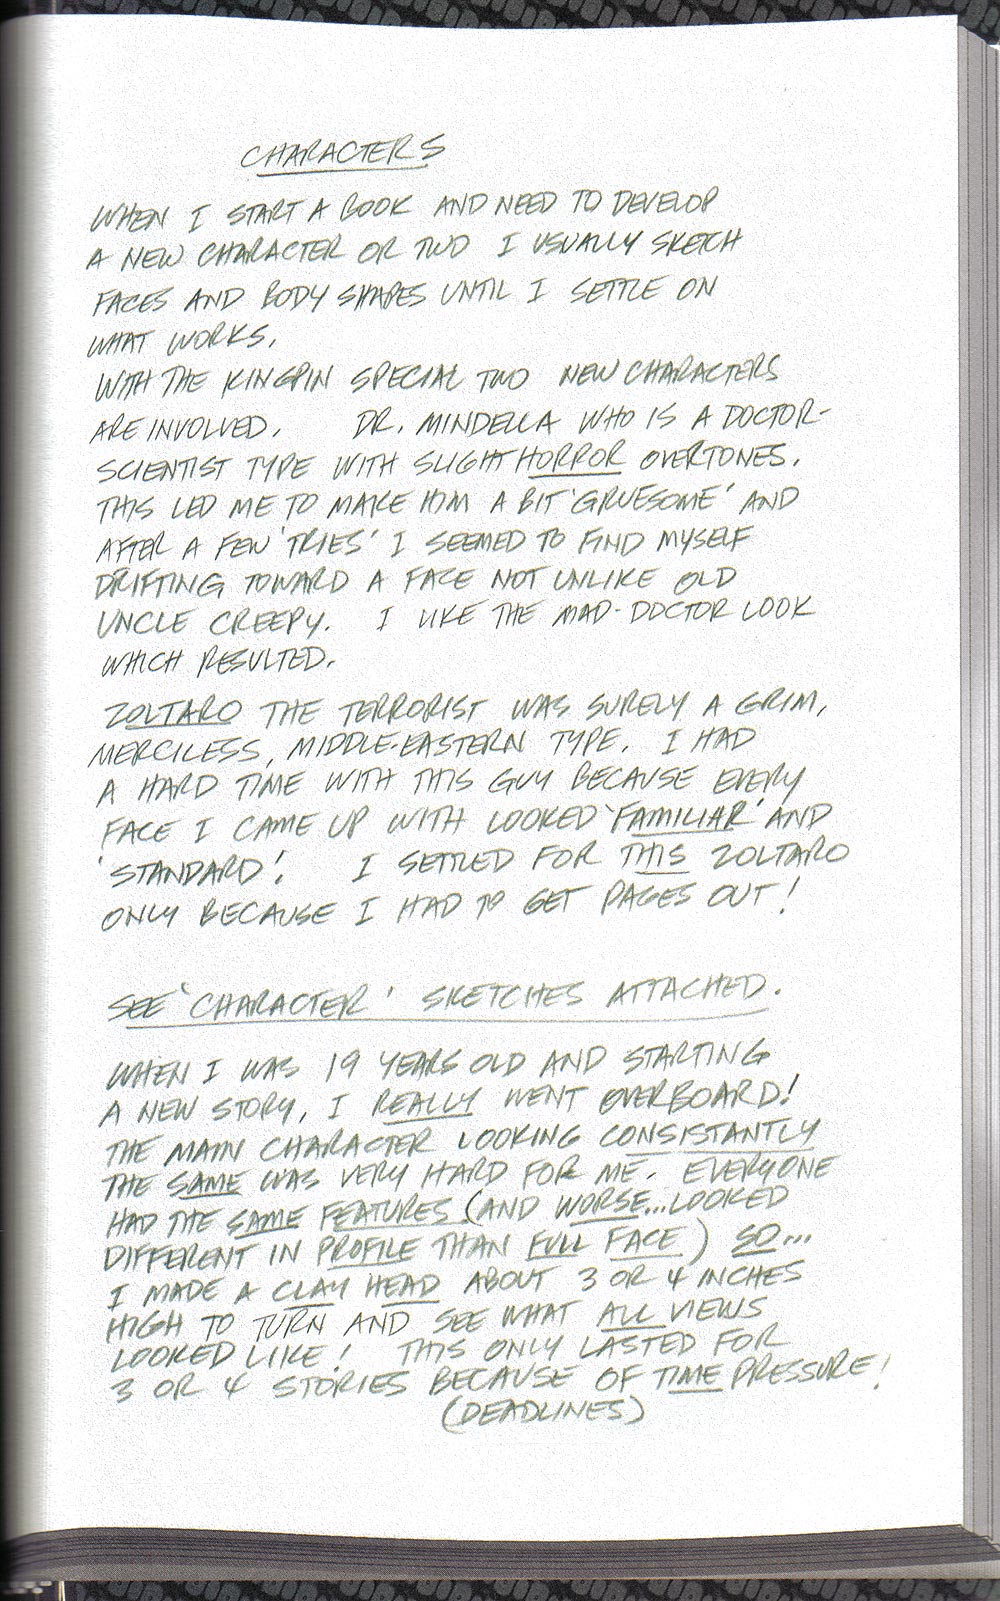 CHARACTERS
WHEN I START A BOOK AND NEED TO DEVELOP
A NEW CHARACTER OR TWO I USUALLY SKETCH
FACES AND BODY SHAPES UNTIL I SETTLE ON
WHAT WORKS.
WITH THE KINGPIN SPECIAL TWO NEW CHARACTERS
ARE INVOLVED. DR. MINDELLA WHO IS A DOCTOR-
SCIENTIST TYPE WITH SLIGHT HORROR OVERTONES.
THIS LED ME TO MAKE HIM A BIT 'GRUESOME' AND
AFTER A FEW 'TRIES' I SEEMED TO FIND MYSELF
DRIFTING TOWARD A FACE NOT UNLIKE OLD
UNCLE CREEPY. I LIKE THE MAD-DOCTOR LOOK
WHICH RESULTED.
ZOLTARO THE TERRORIST WAS SURELY A GRIM,
MERCILESS, MIDDLE-EASTERN TYPE. I HAD
A HARD TIME WITH THIS GUY BECAUSE EVERY
FACE I CAME UP WITH LOOKED 'FAMILIAR' AND
'STANDARD'! I SETTLED FOR THIS ZOLTARO
ONLY BECAUSE I HAD TO GET PAGES OUT!
SEE 'CHARACTER' SKETCHES ATTACHED.
WHEN I WAS 19 YEARS OLD AND STARTING
A NEW STORY, I REALLY WENT OVERBOARD!
THE MAIN CHARACTER LOOKING CONSISTANTLY
THE SAME WAS VERY HARD FOR ME. EVERYONE
HAD THE SAME FEATURES (AND WORSE...LOOKED
DIFFERENT IN PROFILE THAN FULL FACE) SO...
I MADE A CLAY HEAD ABOUT 3 OR 4 INCHES
HIGH TO TURN AND SEE WHAT ALL VIEWS
LOOKED LIKE! THIS ONLY LASTED FOR
3 OR 4 STORIES BECAUSE OF TIME PRESSURE!
(DEADLINES)